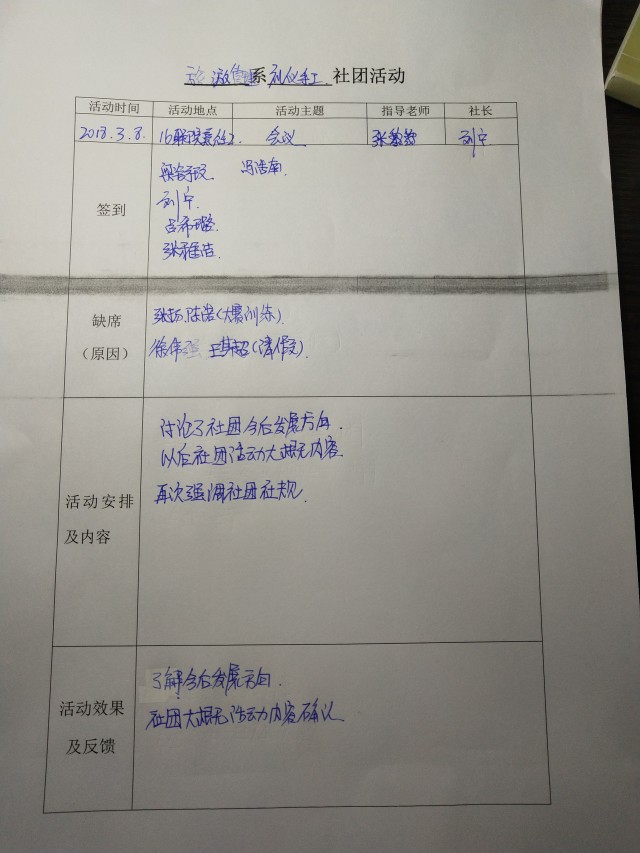 旅游管理系礼仪手工 社团活动
活动时间 活动地点 活动主题 指导老师 社长
2018.3.8. 会议 刘宁
签到
冯浩南
刘宁
吕希璐
张雅洁
缺席
（原因）
张扬、陈蕾（大赛训练）
徐伟强 （请假）
讨论了社团今后发展方向.
以后社团活动大概无内容.
再次强调社团社规.
活动安排
及内容
了解今后发展方向.
社团大概无活动内容确认
活动效果
及反馈